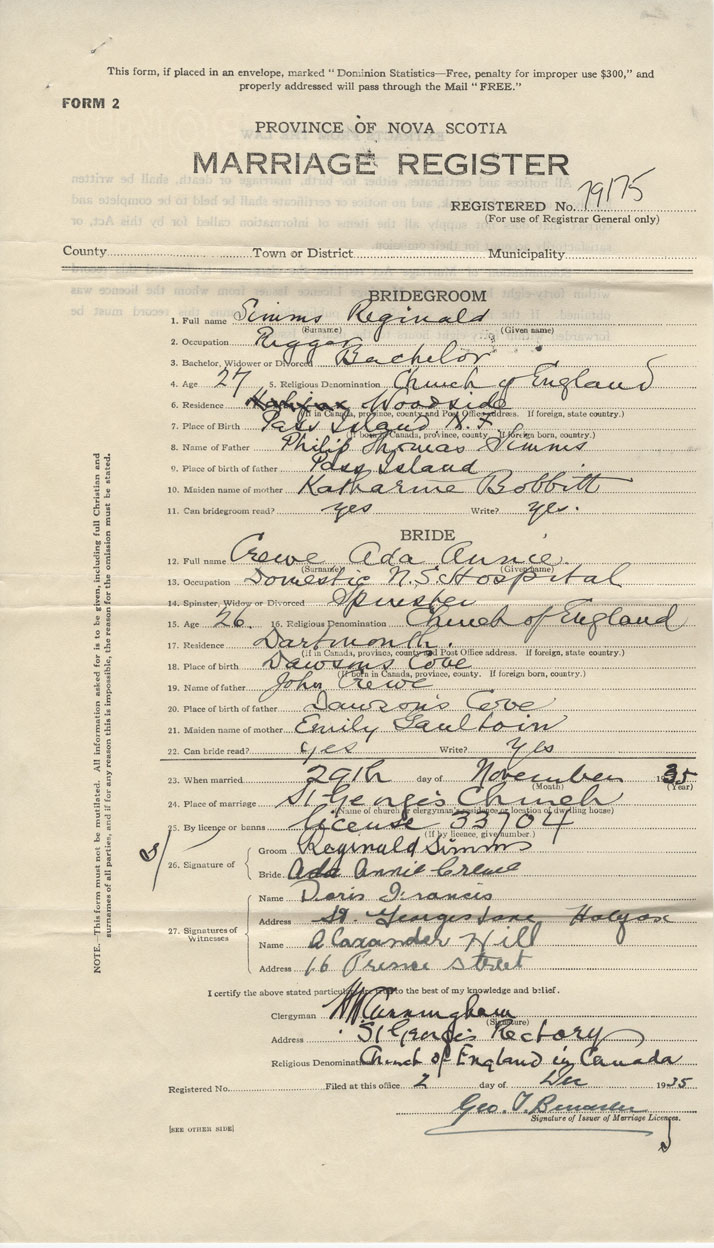 This form, if placed in an envelope, marked "Dominion Statistics—Free, penalty for improper use $300," and
properly addressed will pass through the Mail "FREE."
FORM 2
PROVINCE OF NOVA SCOTIA
MARRIAGE REGISTER
REGISTERED No. 79175
(For use of Registrar General only)
County Town or District Municipality
BRIDEGROOM
1. Full name Simms Reginald
(Surname) (Given name)
2. Occupation Rigger
3. Bachelor, Widower or Divorced Bachelor
4. Age 27 5. Religious Denomination Church of England
6. Residence Halifax Woodside
(If in Canada, province, county and Post Office address. If foreign, state country.)
7. Place of Birth Pass Island N.F.
(If born in Canada, province, county. If foreign born, country.)
8. Name of Father Philip Thomas Simms
9. Place of birth of father Pass Island
10. Maiden name of mother Katharine Bobbitt
11. Can bridegroom read? yes Write? yes.
BRIDE
12. Full name Crewe Ada Annie.
(Surname) (Given name)
13. Occupation Domestic N.S. Hospital
14. Spinster, Widow or Divorced Spinster
15. Age 26. 16. Religious Denomination Church of England
17. Residence Dartmouth.
(If in Canada, province, county and Post Office address. If foreign, state country.)
18. Place of birth Dawsons Cove
(If born in Canada, province, county. If foreign born, country.)
19. Name of father John Crewe
20. Place of birth of father Dawson's Cove
21. Maiden name of mother Emily Gaultoin
22. Can bride read? yes Write? Yes
23. When married 29th day of November 1935
(Month) (Year)
24. Place of marriage St George's Church
(Name of church or clergyman's residence or location of dwelling house)
25. By licence or banns License 33704
(If by licence, give number.)
26. Signature of
Groom Reginald Simms
Bride Ada Annie Crewe
27. Signatures of Witnesses
Name Doris Francis
Address St. Georges Lane Halifax
Name Alaxander Hill
Address 16 Prince Street
I certify the above stated particulars true to the best of my knowledge and belief.
Clergyman Cunningham
(Signature)
Address St George's Rectory
Religious Denomination Church of England in Canada
Registered No. Filed at this office 2 day of Dec 1935
Geo.
Signature of Issuer of Marriage Licenses.
[SEE OTHER SIDE]
NOTE.—This form must not be mutilated. All information asked for is to be given, including full Christian and
surnames of all parties, and if for any reason this is impossible, the reason for the omission must be stated.